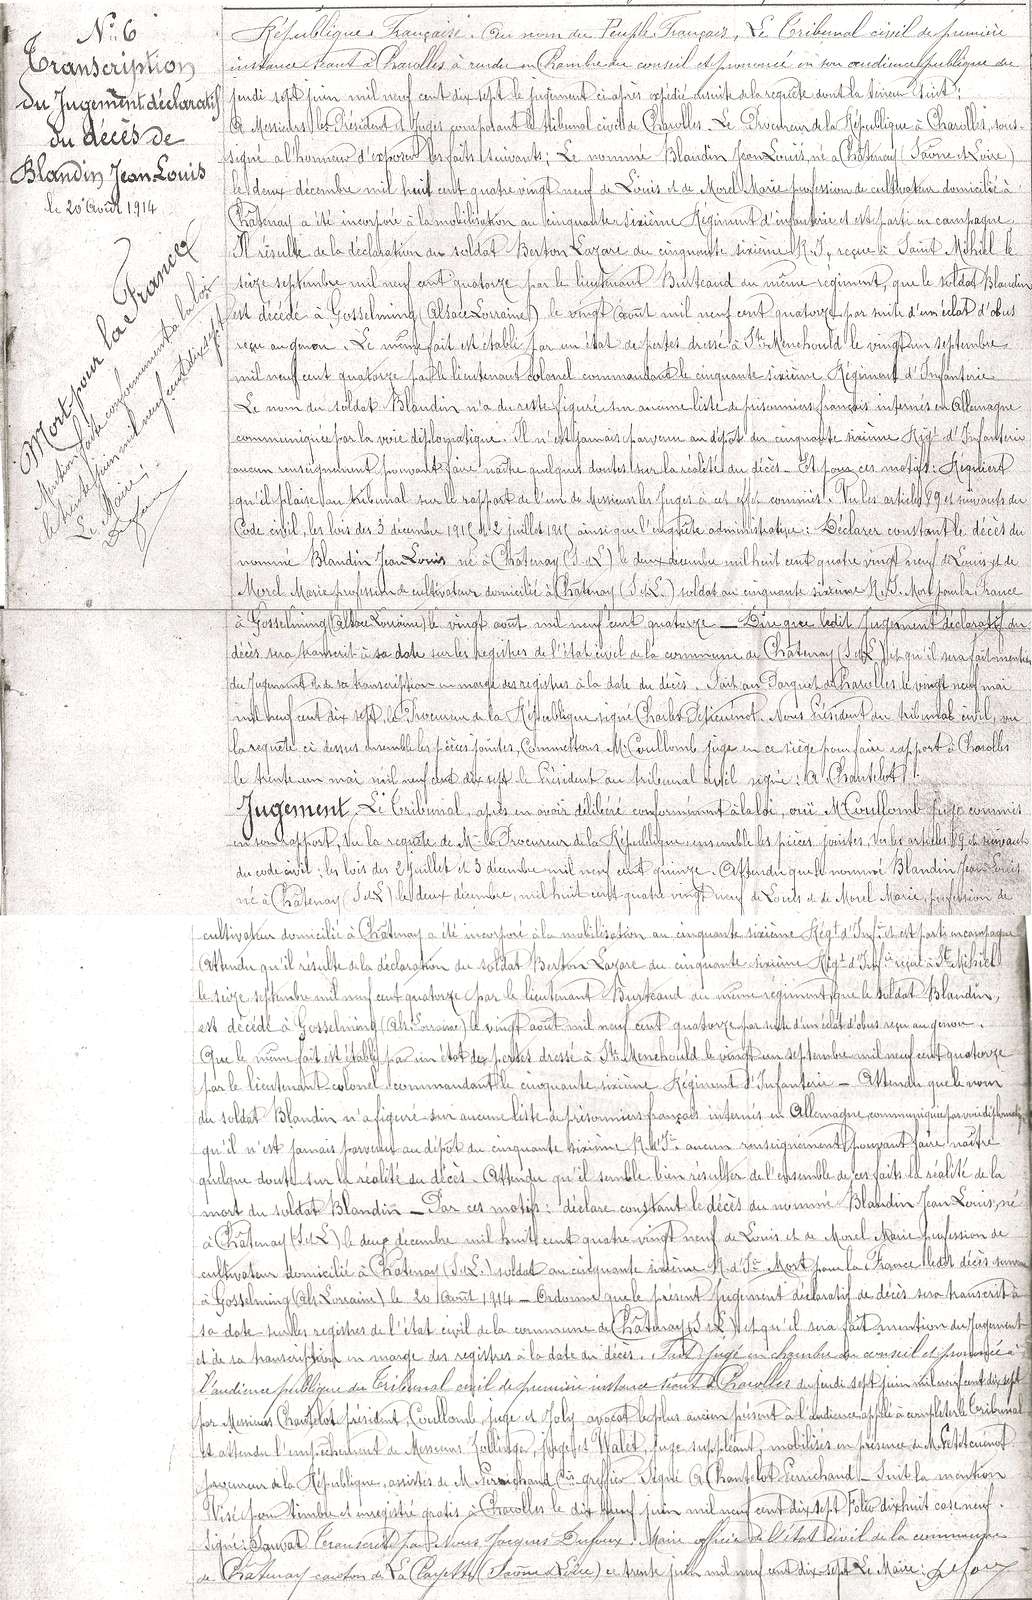 N° 6
Transcription
du Jugement déclaratif
du décès de
Blandin Jean Louis
le 20 Août 1914
Mort pour la France
Mention faite conformément à la loi
le trente juin mil neuf cent dix sept
Le Maire :
Dufour
République Française. Au nom du Peuple Français, Le Tribunal civil de première
instance séant à Charolles a rendu en Chambre du conseil et prononcé en son audience publique du
jeudi sept juin mil neuf cent dix sept le jugement ci après expédié ensuite de la requête dont la teneur suit :
A Messieurs les Président et Juges composant le tribunal civil de Charolles. Le Procureur de la République à Charolles, sous-
signé a l'honneur d'exposer les faits suivants : Le nommé Blandin Jean Louis, né à Châtenay (Saône et Loire)
le deux décembre mil huit cent quatre vingt neuf de Louis et de Morel Marie profession de cultivateur domicilié à
Châtenay a été incorporé à la mobilisation au cinquante sixième Régiment d'infanterie et est parti en campagne.
Il résulte de la déclaration du soldat Berton Lazare du cinquante sixième R.I., reçue à Saint Mihiel le
seize septembre mil neuf cent quatorze par le lieutenant Burteaud du même régiment, que le soldat Blandin
est décédé à Gosselming (Alsace Lorraine) le vingt août mil neuf cent quatorze par suite d'un éclat d'obus
reçu au genou. Le même fait est établi par un état de pertes dressé à Ste Menehould le vingt un septembre
mil neuf cent quatorze par le lieutenant colonel commandant le cinquante sixième Régiment d'Infanterie
Le nom du soldat Blandin n'a du reste figuré sur aucune liste de prisonniers français internés en Allemagne
communiquée par la voie diplomatique. Il n'est jamais parvenu au dépôt du cinquante sixième Régt d'Infanterie
aucun renseignement pouvant faire naître quelques doutes sur la réalité du décès. Et pour ces motifs : Requiert
qu'il plaise au tribunal sur le rapport de l'un de Messieurs les Juges à cet effet commis. Vu les articles 89 et suivants du
Code civil, les lois des 3 décembre 1915 et 2 juillet 1915 ainsi que l'enquête administrative : Déclarer constant le décès du
nommé Blandin Jean Louis né à Châtenay (S. et L.) le deux décembre mil huit cent quatre vingt neuf de Louis et de
Morel Marie profession de cultivateur domicilié à Châtenay (S. et L.) soldat au cinquante sixième R.I. Mort pour la France
à Gosselming (Alsace Lorraine) le vingt août mil neuf cent quatorze — Dire que ledit Jugement déclaratif du
décès sera transcrit à sa date sur les registres de l'état civil de la commune de Châtenay (S. et L.) et qu'il sera fait mention
du Jugement et de sa transcription en marge des registres à la date du décès. Fait au Parquet de Charolles le vingt neuf mai
mil neuf cent dix sept, le Procureur de la République signé Charles. Nous Président du tribunal civil, vu
la requête ci dessus ensemble les pièces jointes, Commettons M. Coullomb juge en ce siège pour faire rapport à Charolles
le trente un mai mil neuf cent dix sept le Président au tribunal civil signé : A Chantelot.
Jugement. Le Tribunal, après en avoir délibéré conformément à la loi, ouï M. Coullomb juge commis
en son rapport, Vu la requête de M. le Procureur de la République, ensemble les pièces jointes, Vu les articles 89 et suivants
du code civil ; les lois des 2 juillet et 3 décembre mil neuf cent quinze. Attendu que le nommé Blandin Jean Louis
né à Châtenay (S. et L.) le deux décembre, mil huit cent quatre vingt neuf de Louis et de Morel Marie, profession de
cultivateur domicilié à Châtenay a été incorporé à la mobilisation au cinquante sixième Régt d'Infie et est parti en campagne
Attendu qu'il résulte de la déclaration du soldat Berton Lazare du cinquante sixième Régt d'Infie reçue à St Mihiel
le seize septembre mil neuf cent quatorze par le lieutenant Burteaud du même régiment, que le soldat Blandin,
est décédé à Gosselming (Als. Lorraine) le vingt août mil neuf cent quatorze par suite d'un éclat d'obus reçu au genou.
Que le même fait est établi par un état de pertes dressé à Ste Menehould le vingt un septembre mil neuf cent quatorze
par le lieutenant colonel commandant le cinquante sixième Régiment d'Infanterie — Attendu que le nom
du soldat Blandin n'a figuré sur aucune liste de prisonniers français internés en Allemagne communiquée par voie diplomatique
qu'il n'est jamais parvenu au dépôt du cinquante sixième R. d'Ie aucun renseignement pouvant faire naître
quelque doute sur la réalité du décès. Attendu qu'il semble bien résulter de l'ensemble de ces faits la réalité de la
mort du soldat Blandin — Par ces motifs : déclare constant le décès du nommé Blandin Jean Louis, né
à Châtenay (S. et L.) le deux décembre mil huit cent quatre vingt neuf de Louis et de Morel Marie profession de
cultivateur domicilié à Châtenay (S. et L.) soldat au cinquante sixième R. d'Ie Mort pour la France ledit décès survenu
à Gosselming (Als. Lorraine) le 20 Août 1914 — Ordonne que le présent jugement déclaratif de décès sera transcrit à
sa date sur les registres de l'état civil de la commune de Châtenay (S. et L.) et qu'il sera fait mention du Jugement
et de sa transcription en marge des registres à la date du décès. Fait jugé en chambre du conseil et prononcé à
l'audience publique du Tribunal civil de première instance séant à Charolles du jeudi sept juin mil neuf cent dix sept
par Messieurs Chantelot président, Coullomb, juge et Joly, avocat le plus ancien présent à l'audience appelé à compléter le Tribunal
et attendu l'empêchement de Messieurs Jollinge, juge et Walet, juge suppléant, mobilisés en présence de M.
procureur de la République, assistés de M. Perrichand Cis greffier Signé A Chantelot Perrichand — Suit la mention
Visé pour timbre et enregistré gratis à Charolles le dix neuf juin mil neuf cent dix sept Folio dix huit case neuf.
Signé : Sauvat Transcrit par Nous Jacques Dufour, Maire officier de l'état civil de la commune
de Châtenay canton de La Clayette (Saône et Loire) ce trente juin mil neuf cent dix sept Le Maire : Dufour